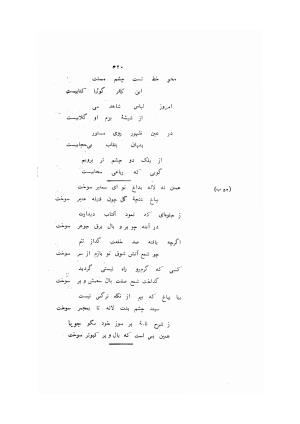 ۵۲۰
محو خط تست چشم مستت
این کنار گویا کتابیست
امروز لباس شاهد می
از شیشهٔ بزم او گلابیست
در عین ظهور روی مستور
بمیان نقاب بی‌حجابیست
از یک دو چشم تر برویم
گویی که رباعی سحابیست
(ج ب) همین نه لاله بداغ تو ای سمنبر سوخت
بباغ غنچهٔ گل چون فتیله عنبر سوخت
ز جلوه‌ای که نمود آفتاب دیدارت
در آینه چو پر و بال برق جوهر سوخت
اگرچه یافته صد خلعت گداز تنم
چو شمع آتش شوق تو بازم از سر سوخت
کسی که گرم‌رو راه نیستی گردید
گداخت شمع صفت بال سعیش و پر سوخت
بیا بباغ که بیم از نگه نرگس نیست
سپند چشم بدت لاله تا بمجمر سوخت
ز شرح نامهٔ پر سوز خود مگو جویا
همین بس است که بال و پر کبوتر سوخت